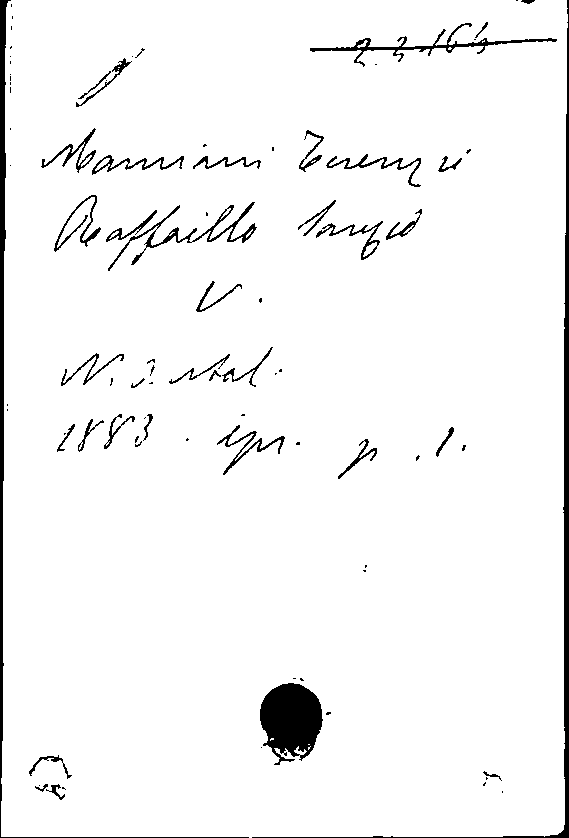 2.2.164
Mamiani Terenzio
Raffaello Sanzio
V.
N. A. ital.
1883. ipr. p. 1.